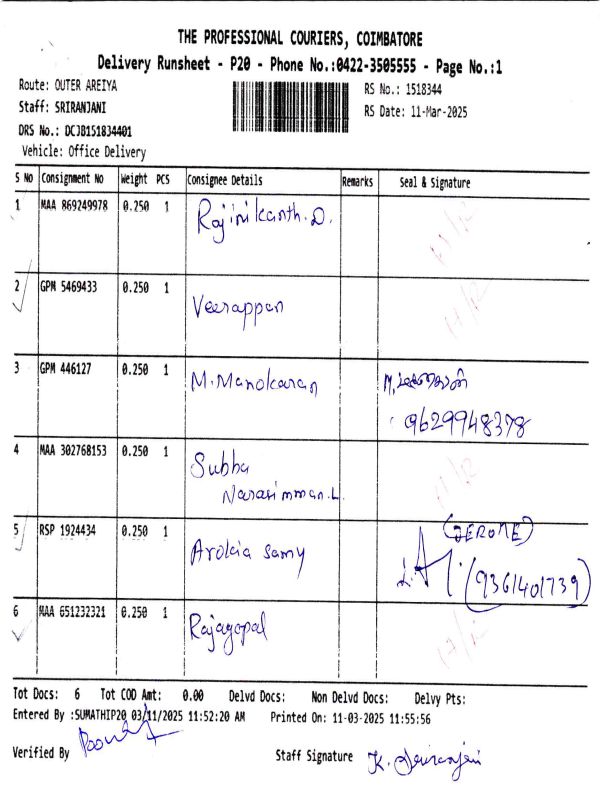 THE PROFESSIONAL COURIERS, COIMBATORE
Delivery Runsheet - P20 - Phone No.:0422-3505555 - Page No.:1
Route: OUTER AREIYA
RS No.: 1518344
Staff: SRIRANJANI
RS Date: 11-Mar-2025
DRS No.: DCJB151834401
Vehicle: Office Delivery
S No Consignment No Weight PCS Consignee Details Remarks Seal & Signature
1 MAA 869249978 0.250 1 Rajinikanth. D.
2 GPM 5469433 0.250 1 Veerappan
3 GPM 446127 0.250 1 M. Manokaran M.
9629948378
4 MAA 302768153 0.250 1 Subba
Narasimman. L.
5 RSP 1924434 0.250 1 Arokia samy (JEROME)
(9361401739)
6 MAA 651232321 0.250 1 Rajagopal
Tot Docs: 6 Tot COD Amt: 0.00 Delvd Docs: Non Delvd Docs: Delvy Pts:
Entered By :SUMATHIP20 03/11/2025 11:52:20 AM Printed On: 11-03-2025 11:55:56
Verified By
Staff Signature K.